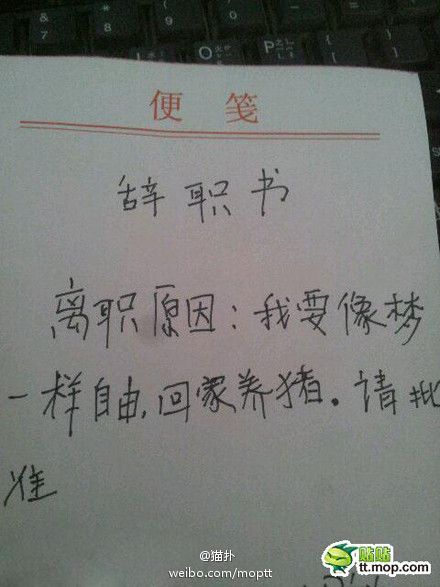 & 7
* 8
( 9
O
P
便笺
辞职书
离职原因：我要像梦
一样自由，回家养猪。请批
准
@猫扑
weibo.com/moptt
贴贴
tt.mop.com